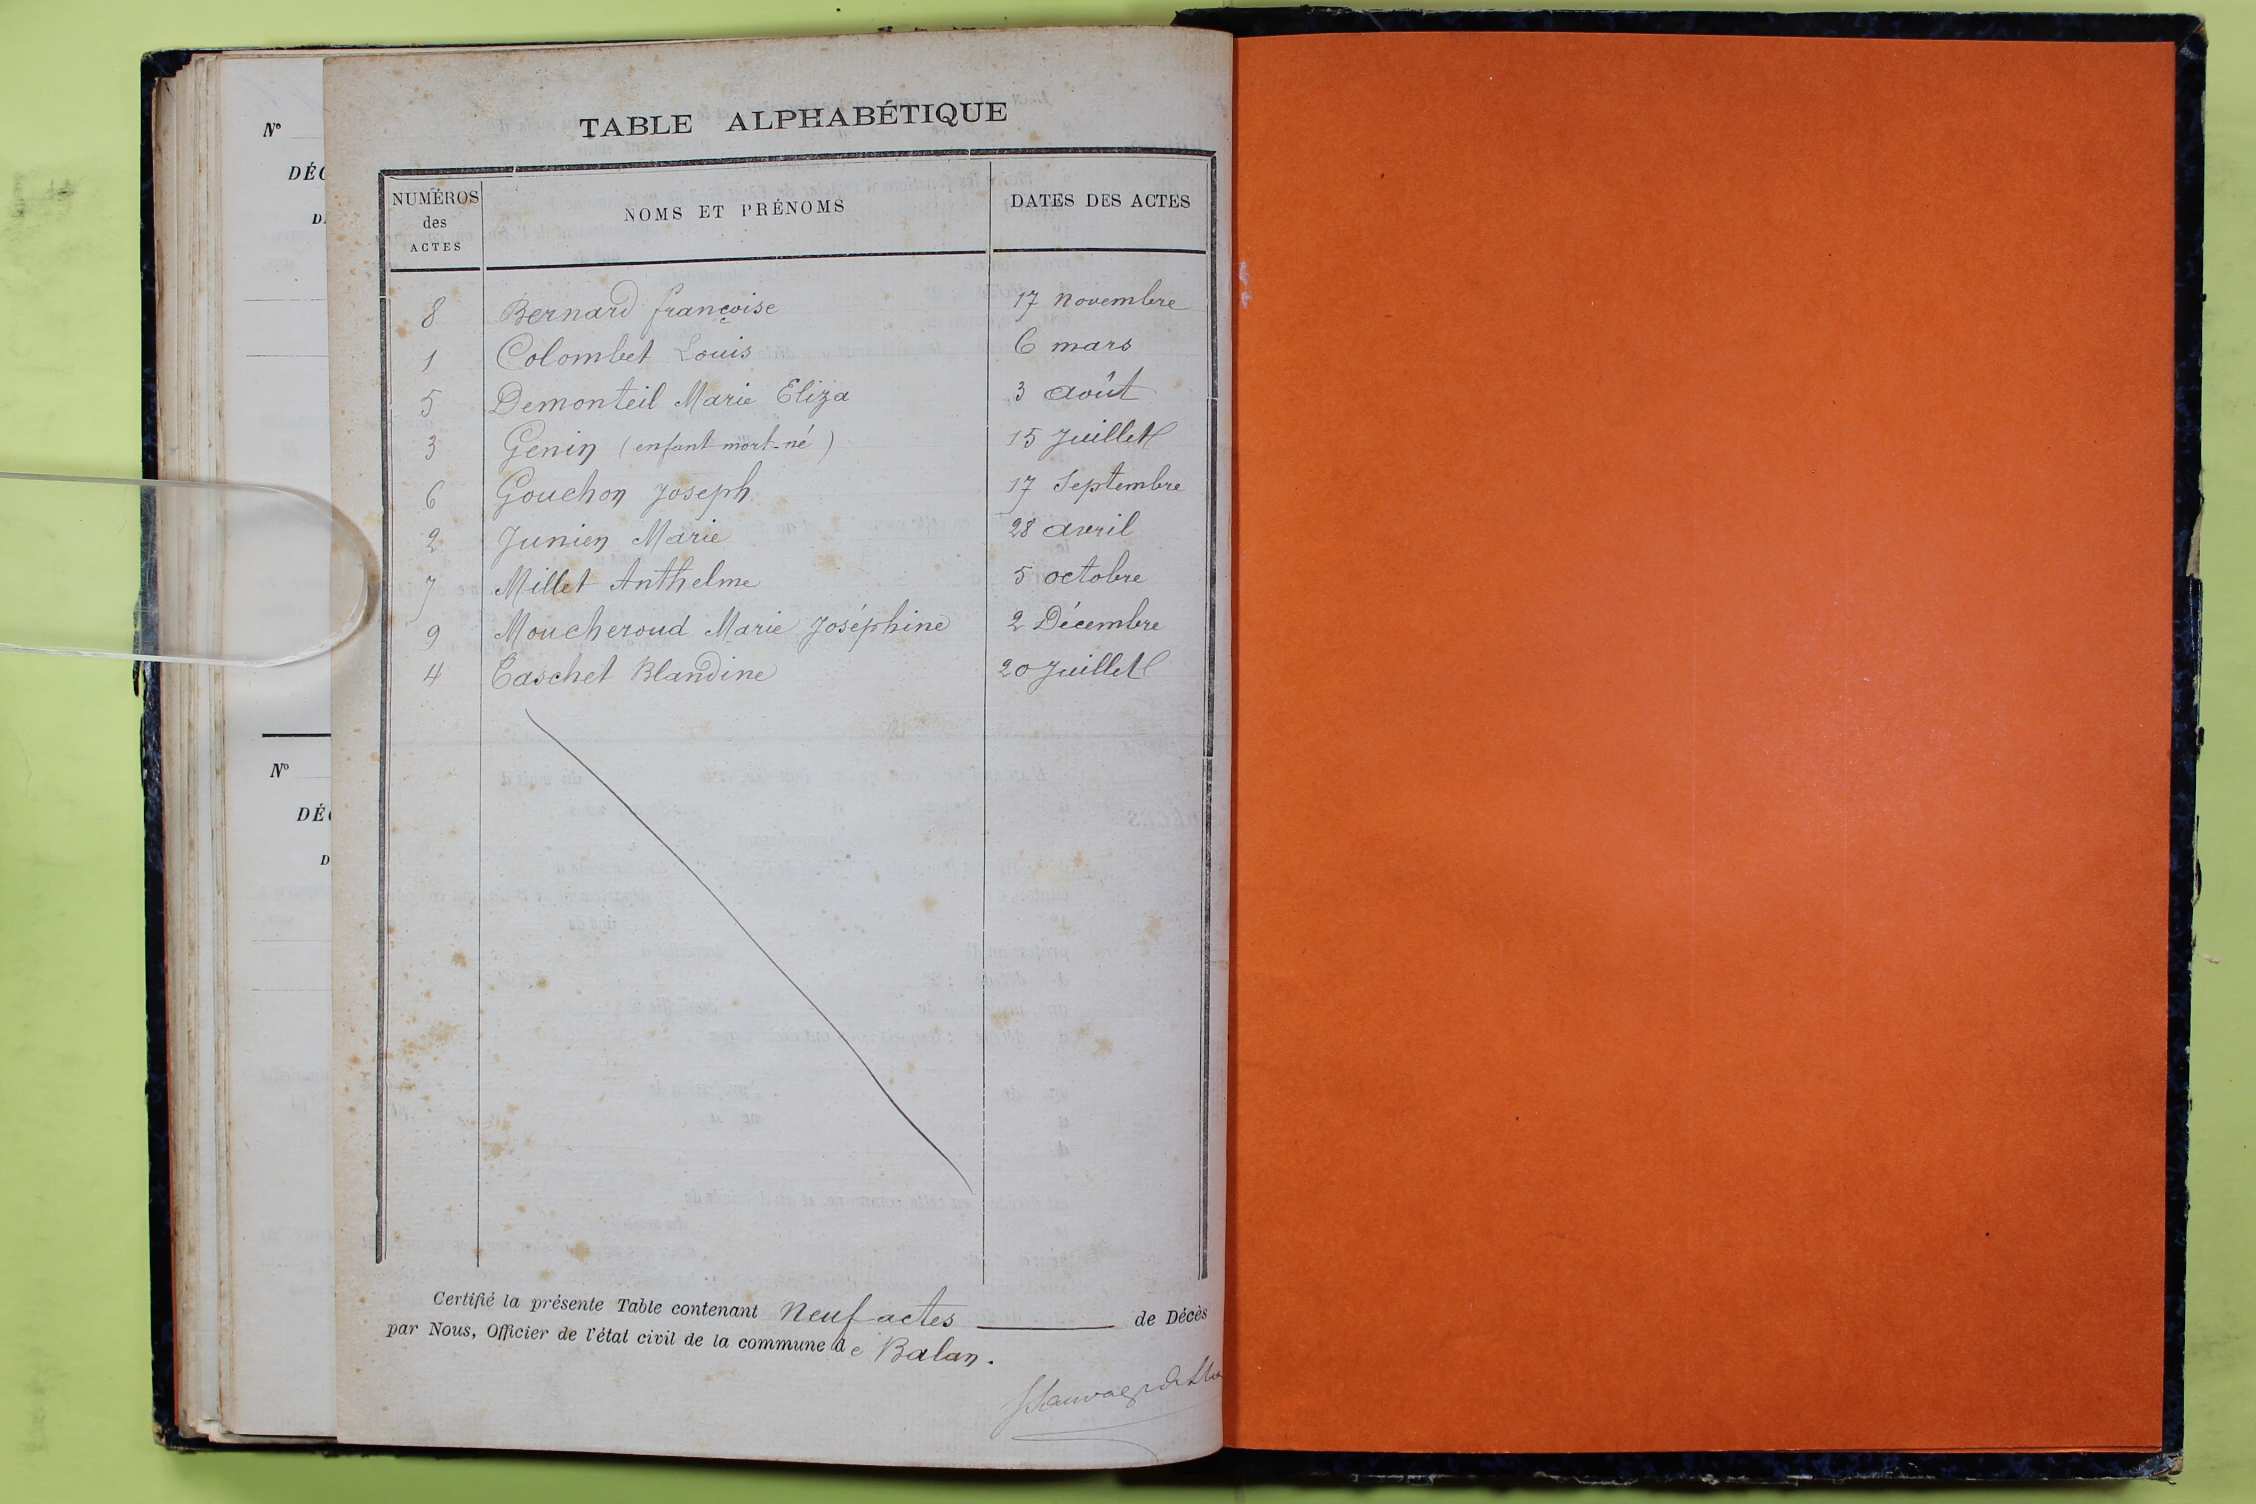 TABLE ALPHABÉTIQUE
NUMÉROS des ACTES
NOMS ET PRÉNOMS
DATES DES ACTES
8 Bernard françoise 17 novembre
1 Colombet Louis 6 mars
5 Demonteil Marie Eliza 3 août
3 Genin (enfant mort-né) 15 Juillet
6 Gouchon Joseph 17 Septembre
2 Junien Marie 28 avril
7 Millet Anthelme 5 octobre
9 Moucheroud Marie Joséphine 2 Décembre
4 Taschet Blandine 20 Juillet
Certifié la présente Table contenant Neuf actes de Décès
par Nous, Officier de l'état civil de la commune de Balan.
Nº
DÉC
Nº
DÉ